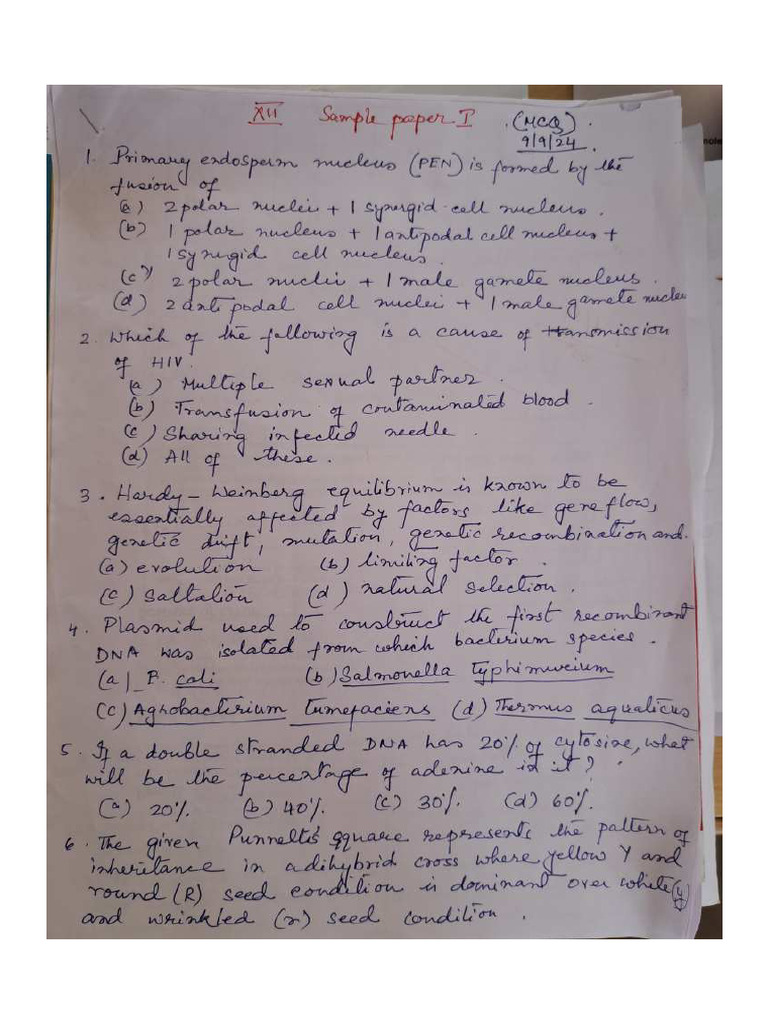 XII Sample paper I (MCQ)
9/9/24
1. Primary endosperm nucleus (PEN) is formed by the
fusion of
(a) 2 polar nuclei + 1 synergid cell nucleus.
(b) 1 polar nucleus + 1 antipodal cell nucleus +
1 synergid cell nucleus.
(c) 2 polar nuclei + 1 male gamete nucleus.
(d) 2 antipodal cell nuclei + 1 male gamete nucleu
2. Which of the following is a cause of transmission
of HIV.
(a) Multiple sexual partner.
(b) Transfusion of contaminated blood.
(c) Sharing infected needle.
(d) All of these.
3. Hardy-Weinberg equilibrium is known to be
essentially affected by factors like gene flow,
genetic drift, mutation, genetic recombination and.
(a) evolution (b) limiting factor.
(c) Saltation (d) natural selection.
4. Plasmid used to construct the first recombinant
DNA was isolated from which bacterium species.
(a) E. coli (b) Salmonella typhimurium
(c) Agrobacterium tumefaciens (d) Thermus aquaticus
5. If a double stranded DNA has 20% of cytosine, what
will be the percentage of adenine in it?
(a) 20%. (b) 40%. (c) 30%. (d) 60%.
6. The given Punnett's square represents the pattern of
inheritance in a dihybrid cross where yellow Y and
round (R) seed condition is dominant over white (y)
and wrinkled (r) seed condition.